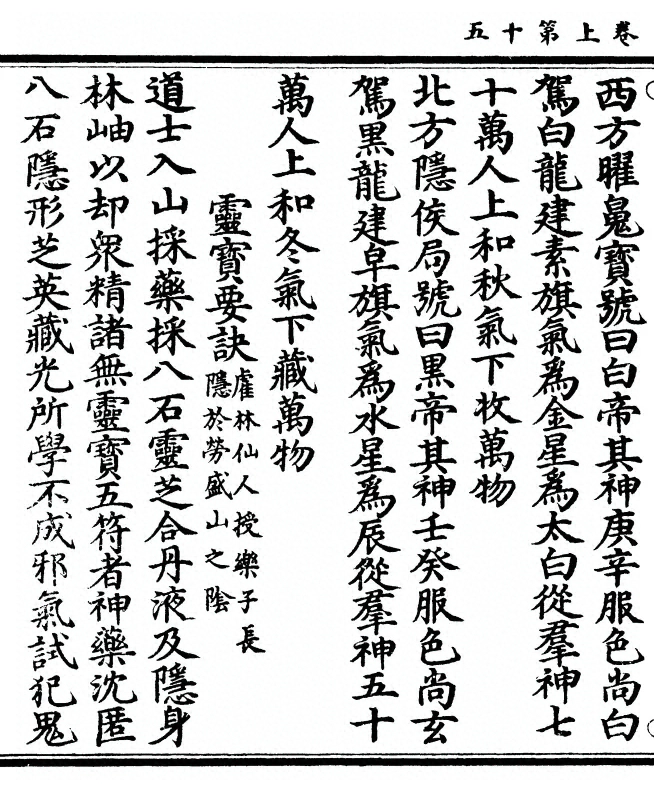 卷上第十五
西方曜鬼寳號曰白帝其神庚辛服色尚白
駕白龍建素旗氣爲金星爲太白從羣神七
十萬人上和秋氣下牧萬物
北方隱侯局號曰黒帝其神壬癸服色尚玄
駕黒龍建皁旗氣爲水星爲辰從羣神五十
萬人上和冬氣下藏萬物
靈寳要訣
霍林仙人授樂子長
隱於勞盛山之陰
道士入山採藥採八石靈芝合丹液及隱身
林岫以却衆精諸無靈寳五符者神藥沈匿
八石隱形芝英藏光所學不成邪氣試犯鬼